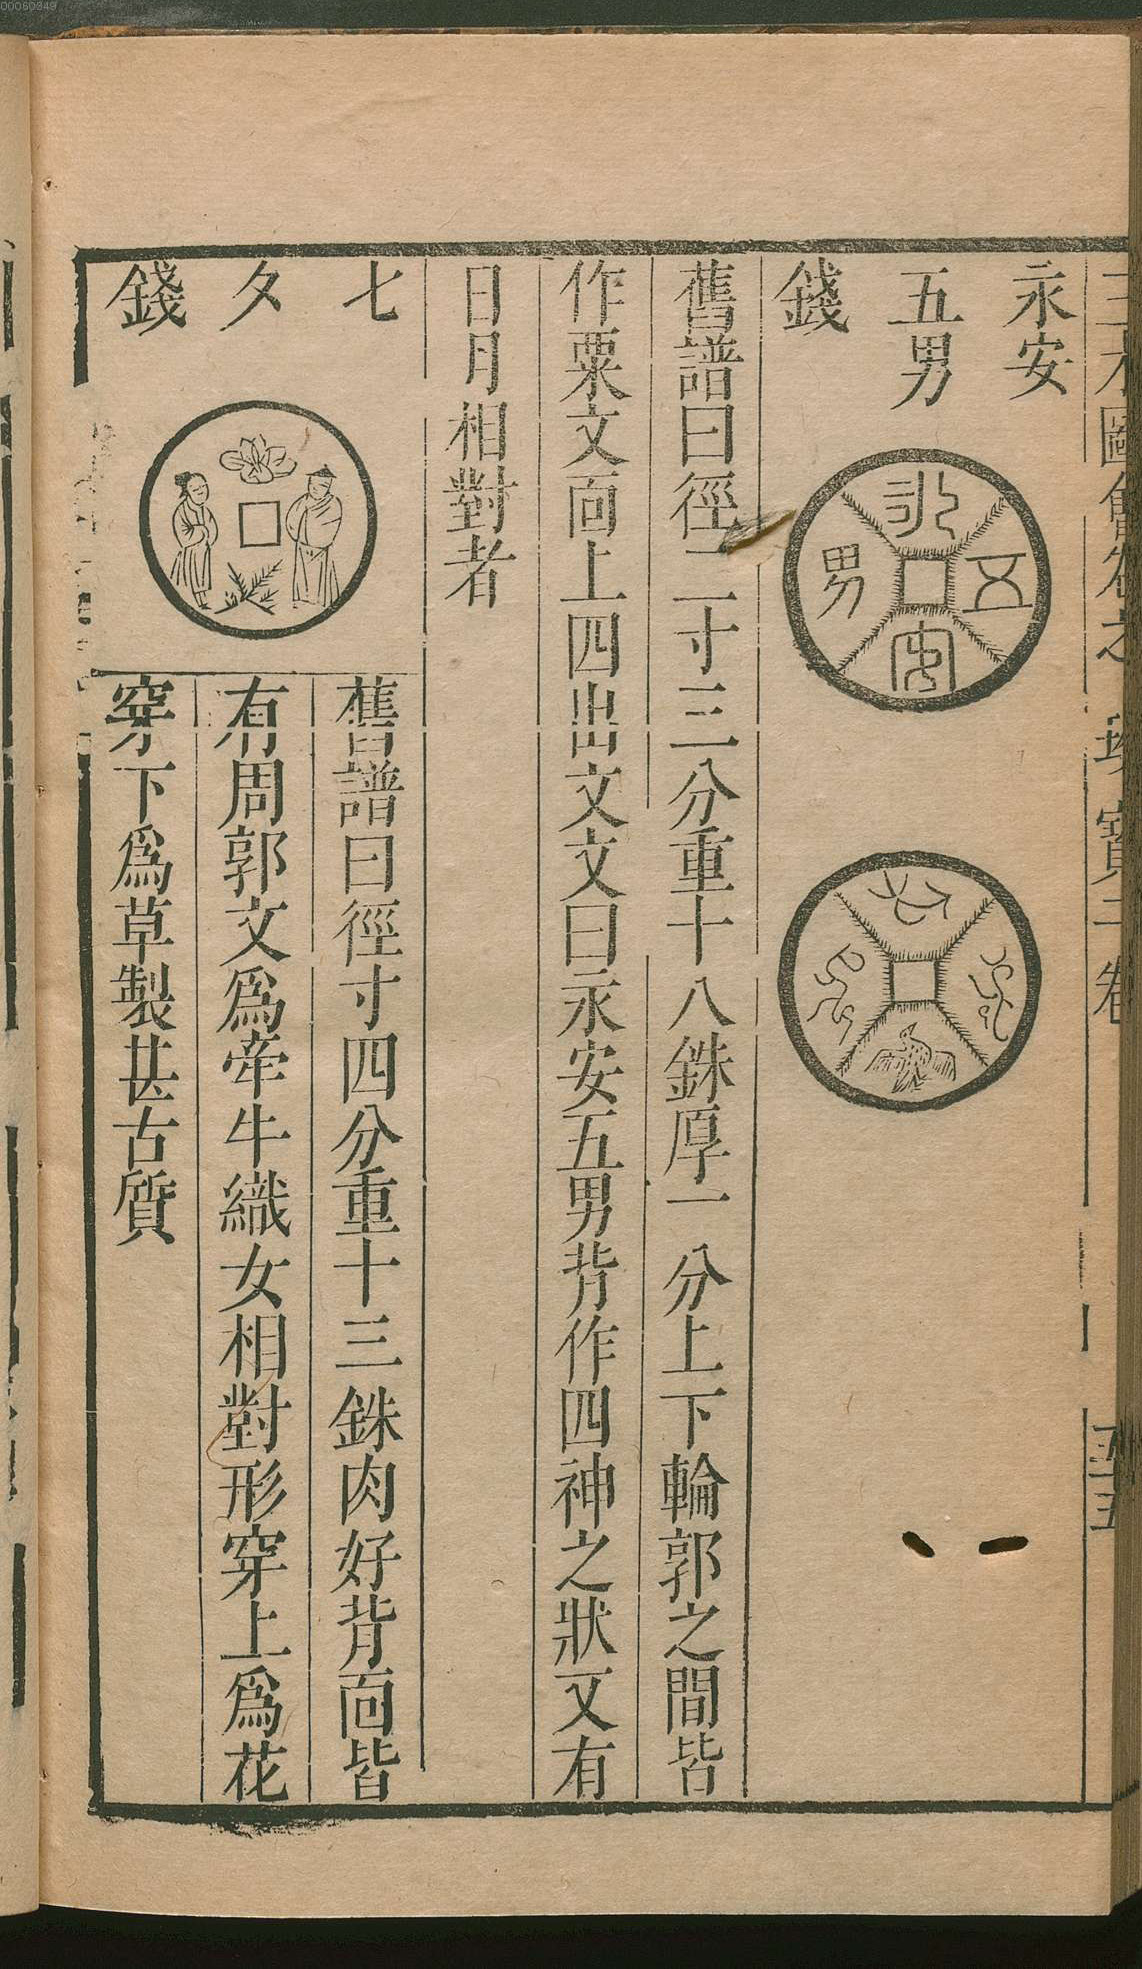 永安
五男
錢
永
安
五
男
舊譜曰徑二寸三分重十八銖厚一分上下輪郭之間皆
作粟文面上四出文文曰永安五男背作四神之狀又有
日月相對者
七
夕
錢
舊譜曰徑寸四分重十三銖肉好背面皆
有周郭文爲牽牛織女相對形穿上爲花
穿下爲草製甚古質
三才圖會卷之 珍寶二卷
五十五
00080349